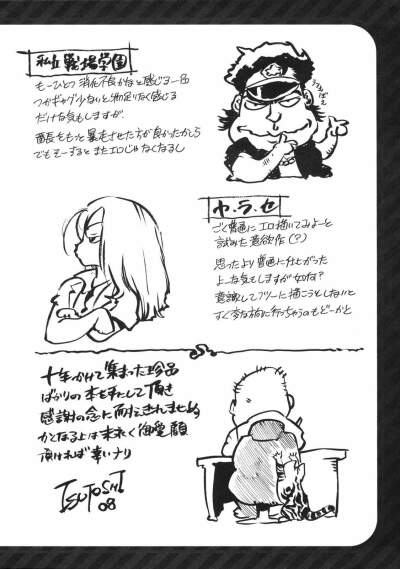 私立戦場学園
もーひとつ消化不良かなと感じる一品
つかギャグ少ないと物足りなく感じる
だけな気もしますが
番長をもっと暴走させた方が良かったかしら
でもそーするとまたエロじゃなくなるし
ヤ・ラ・セ
ごく普通にエロ描いてみよーと
試みた意欲作(?)
思ったより普通に仕上がった
よーな気もしますが如何?
意識してフツーに描こうとしないと
すぐ変な方に行っちゃうのもどーかと
十年かけて集まった珍品
ばかりの本を手にして頂き
感謝の念に耐えきれませぬ
かとなる上は末永く御愛顧
頂ければ幸いナリ
TSUTOSHI
08